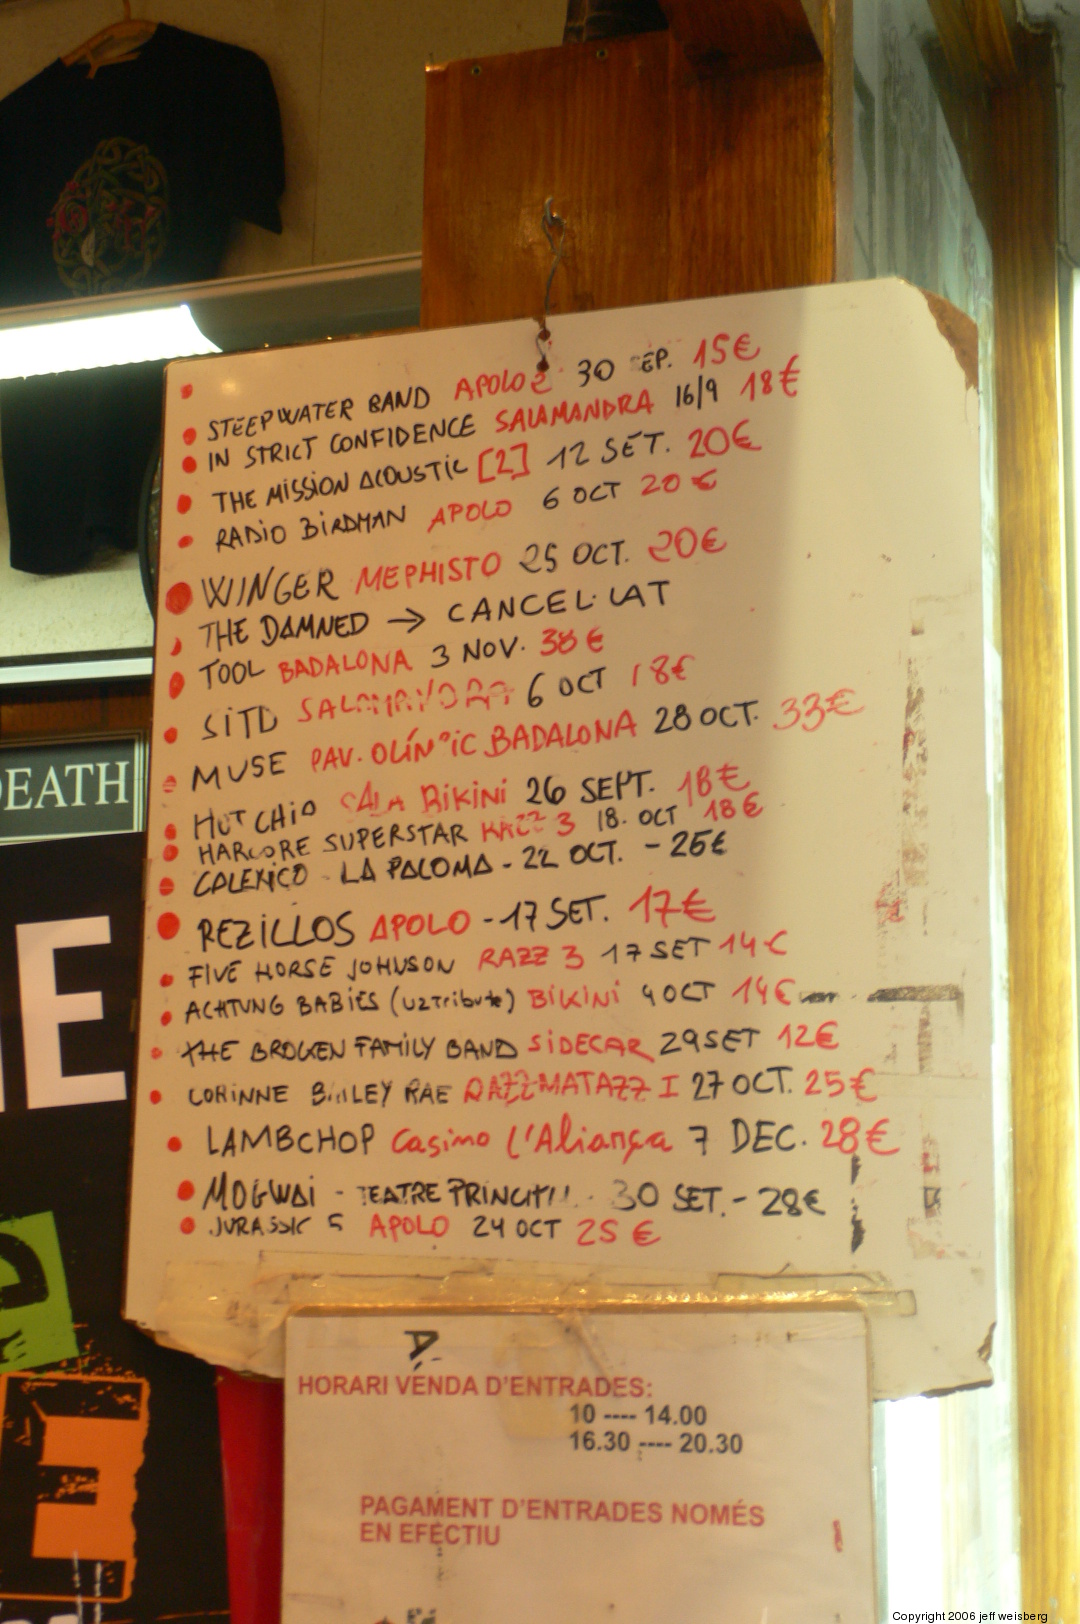 STEEPWATER BAND APOLO 2 30 SEP. 15€
IN STRICT CONFIDENCE SALAMANDRA 16/9 18€
THE MISSION ACOUSTIC [2] 12 SET. 20€
RADIO BIRDMAN APOLO 6 OCT 20€
WINGER MEPHISTO 25 OCT. 20€
THE DAMNED → CANCEL·LAT
TOOL BADALONA 3 NOV. 38€
SITD SALAMANDRA 6 OCT 18€
MUSE PAV. OLÍMPIC BADALONA 28 OCT. 33€
HOT CHIP SALA BIKINI 26 SEPT. 18€
HARCORE SUPERSTAR RAZZ 3 18. OCT 18€
CALEXICO - LA PALOMA - 22 OCT. - 25€
REZILLOS APOLO - 17 SET. 17€
FIVE HORSE JOHNSON RAZZ 3 17 SET 14€
ACHTUNG BABIES (U2 tribute) BIKINI 4 OCT 14€
THE BROKEN FAMILY BAND SIDECAR 29 SET 12€
CORINNE BAILEY RAE RAZZMATAZZ I 27 OCT. 25€
LAMBCHOP Casino l'Aliança 7 DEC. 28€
MOGWAI - TEATRE PRINCIPAL - 30 SET. - 28€
JURASSIC 5 APOLO 24 OCT 25€
EATH
E
E
HORARI VENDA D'ENTRADES:
10 ---- 14.00
16.30 ---- 20.30
PAGAMENT D'ENTRADES NOMÉS
EN EFECTIU
Copyright 2006 jeff weisberg